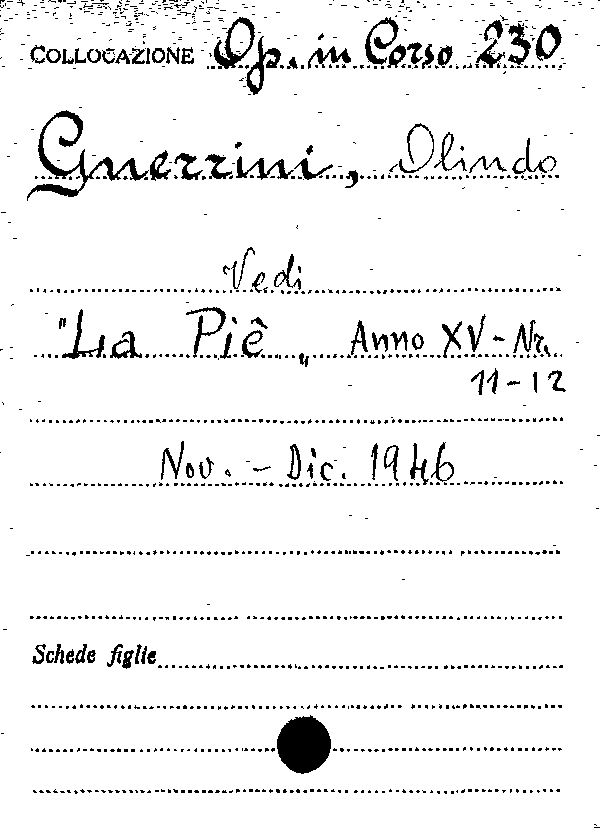 COLLOCAZIONE Op. in Corso 230
Guerrini, Olindo
Vedi
"La Piê„ Anno XV - Nr.
11-12
Nov. - Dic. 1946
Schede figlie